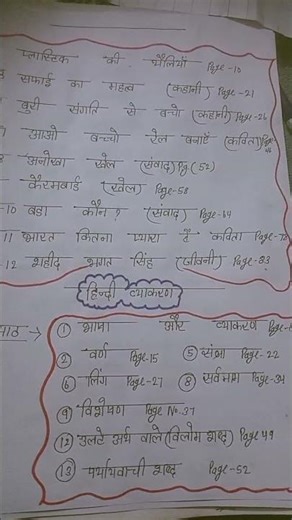 प्लास्टिक की थैलियाँ Page-10
सफाई का महत्व (कहानी) Page-21
बुरी संगति से बचो (कहानी) Page-26
आओ बच्चो रेल बनाएँ (कविता) Page
अनोखा खेल (संवाद) Pg (52)
कैरमबोर्ड (खेल) Page-58
-10 बडा कौन ? (संवाद) Page-69
11 भारत कितना प्यारा है कविता Page-7
-12 शहीद भगत सिंह (जीवनी) Page-83
हिन्दी व्याकरण
पाठ → ① भाषा और व्याकरण Page-
② वर्ण Page-15 ⑤ संज्ञा - Page-22
⑥ लिंग Page-27 ⑧ सर्वनाम Page-34
⑨ विशेषण Page No.37
⑫ उलटे अर्थ वाले (विलोम शब्द) Page 49
⑬ पर्यायवाची शब्द Page-52